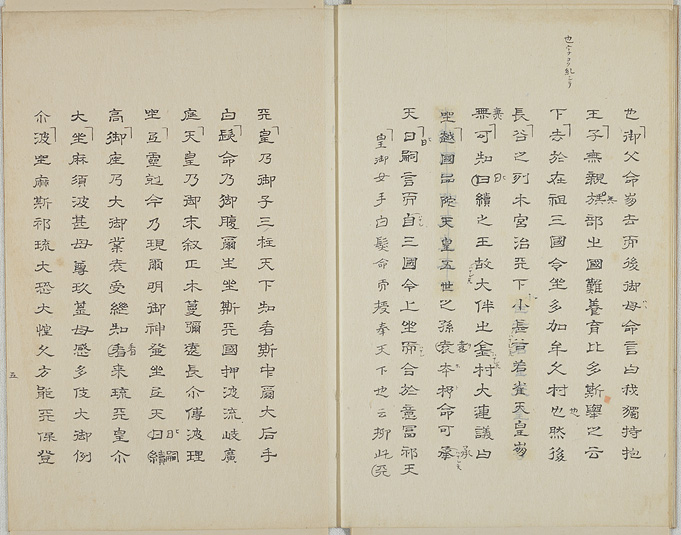 也御父命崩去而後御母命言白我獨持抱
王子無親族部出國難養育比多斯擧之云
下去於在祖三國令坐多加牟久村也然後
長谷之列木宮治天下小長谷若雀天皇崩
無可知日續之王故大伴出金村大連議白
聖越國品陀天皇五世之孫袁本杼命可承
天日嗣言而自三國令上坐而合於意富祁天
皇御女手白髪命而授奉天下也云抑此天
天皇乃御子三柱天下知看斯中爾大后手
白髪命乃御腹爾生坐斯天國押波流岐廣
庭天皇乃御末叙正木蔓彌遠長尒傳波理
坐互靈剋今乃現爾明御神登坐互天日續
高御座乃大御業袁受繼知看来琉天皇尒
大坐麻須波甚母尊玖甚母感多伎大御例
尒波坐麻斯祁琉大恐大惶久方能天保登
五